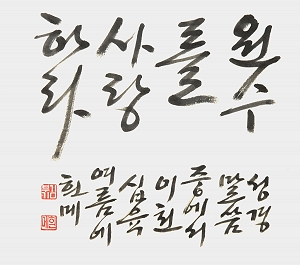 원수
를
사랑
하라
성경
말씀
중에서
이천
십육
여름에